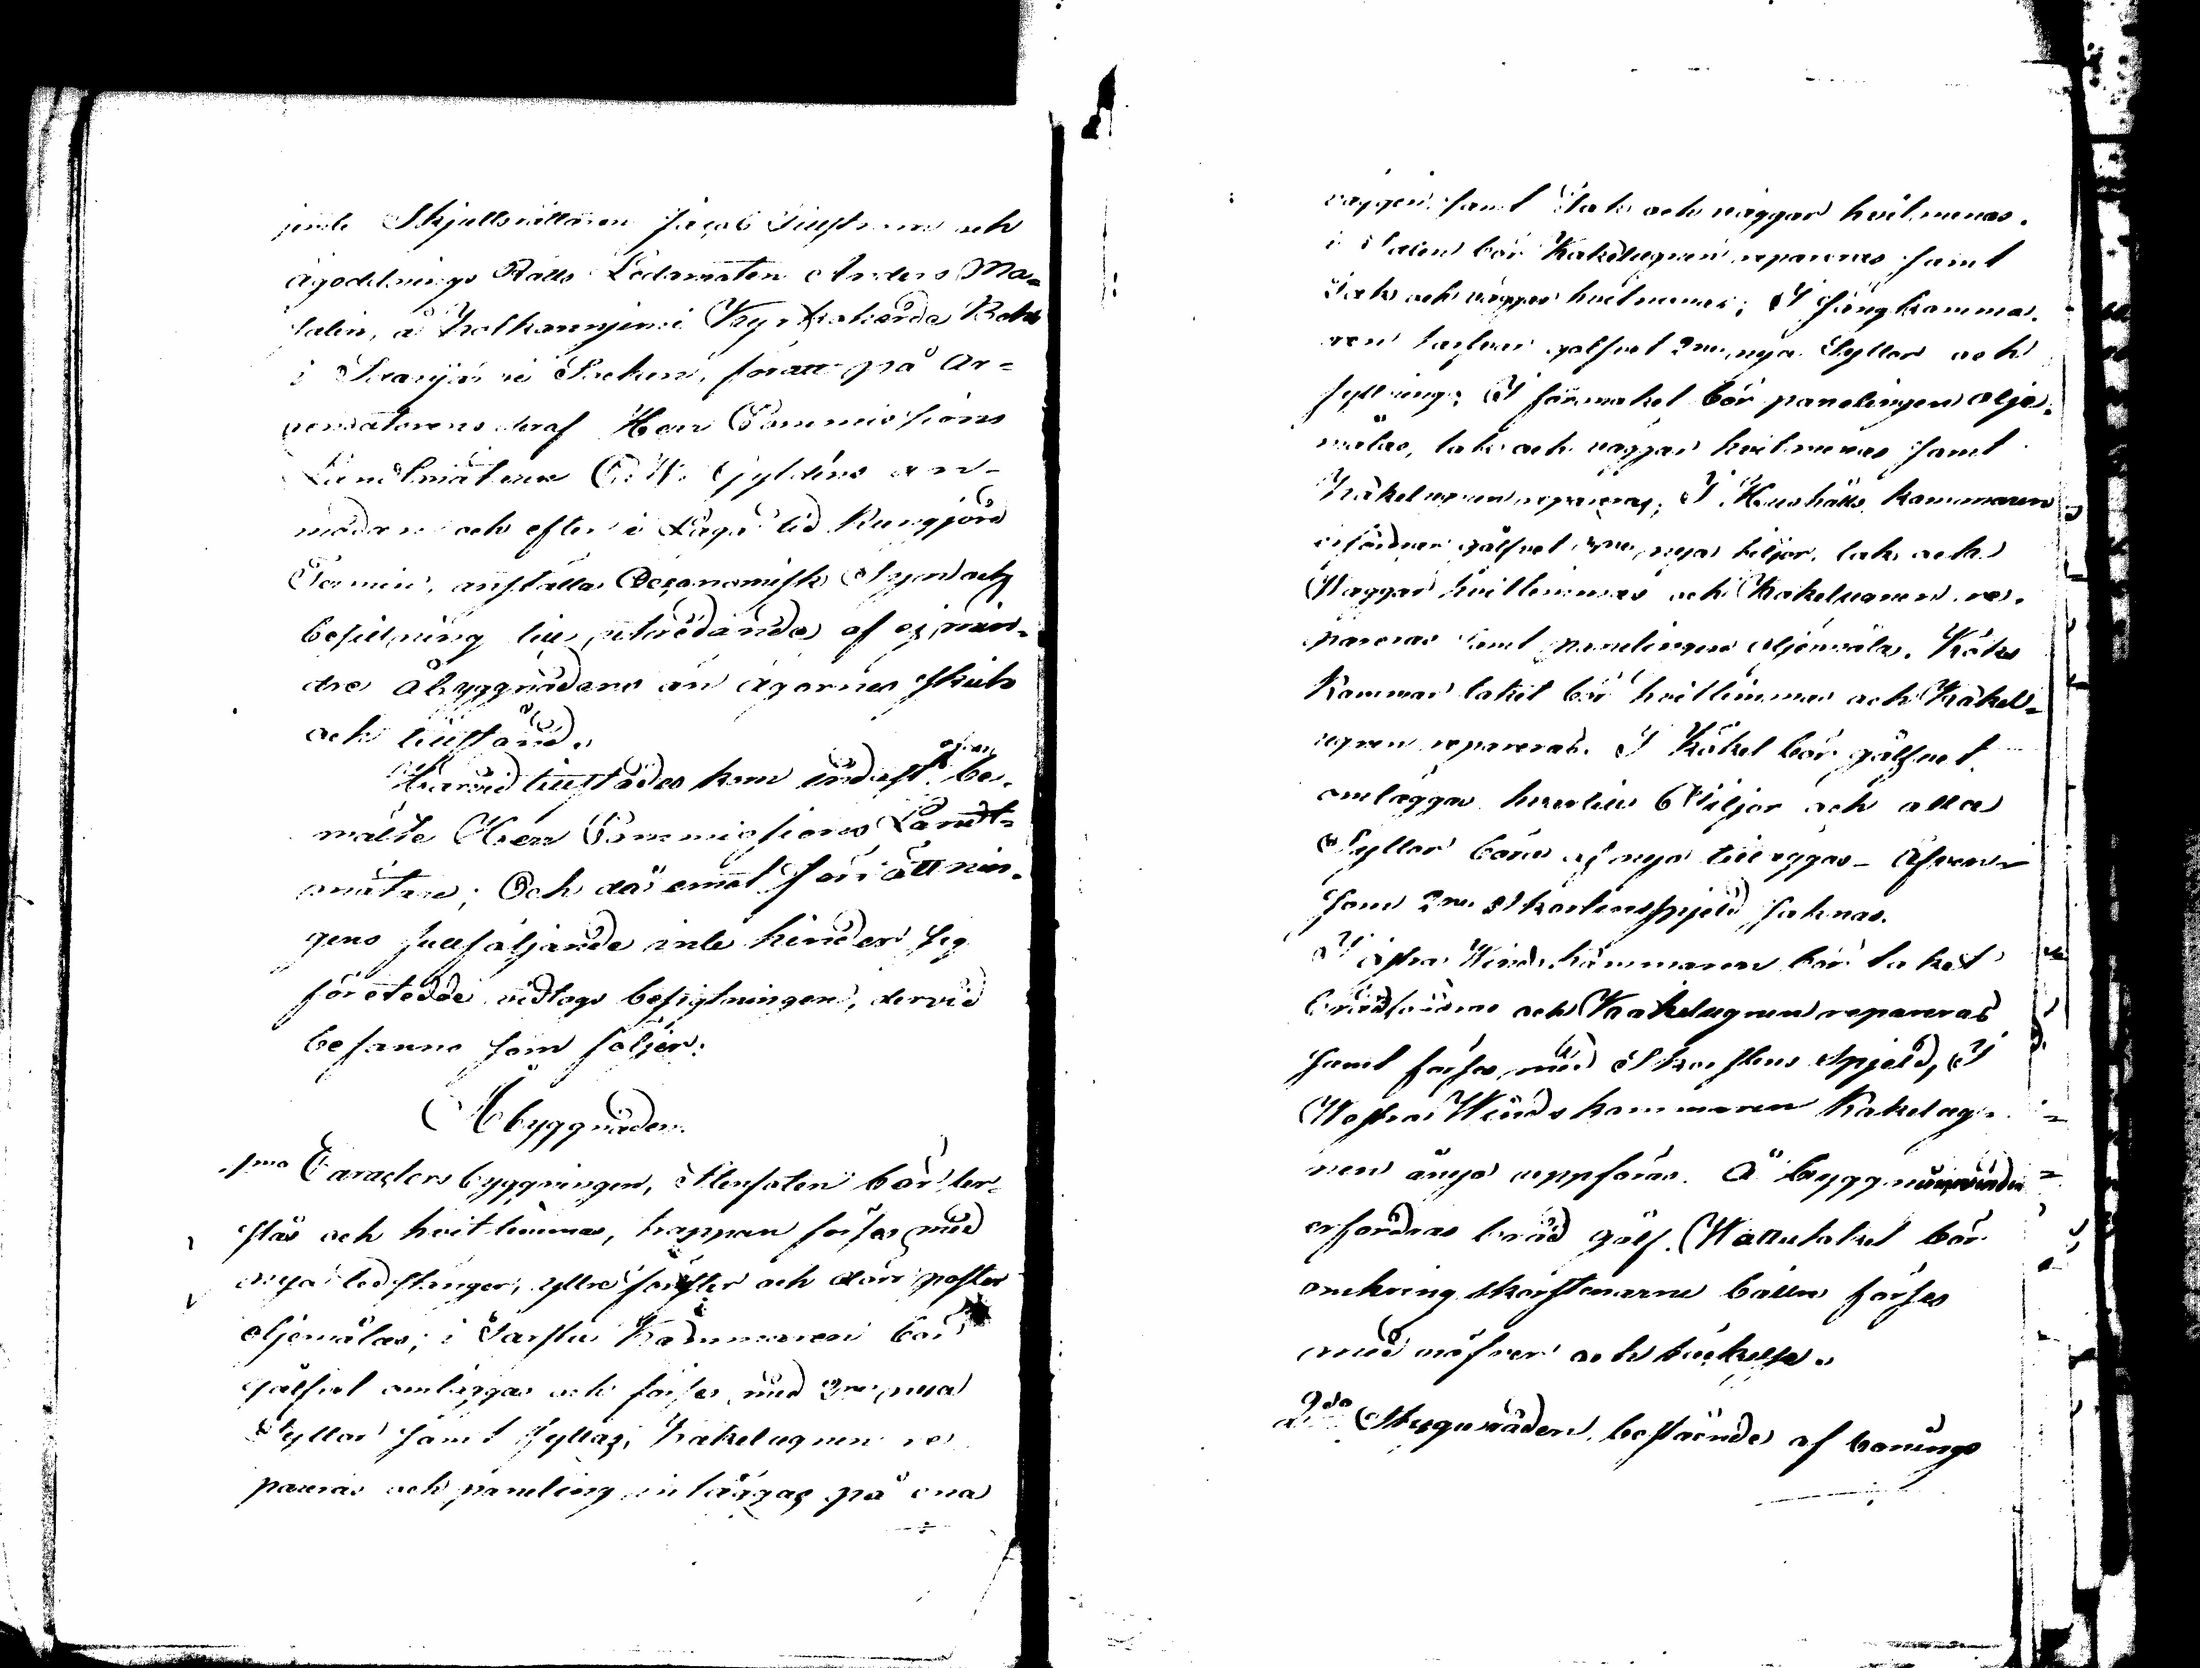 jemte Skjutsrättaren Jacob och
Ägodelnings Rätts Ledamoten Anders Ma-
talin, å Kalkarnjemi Bohl
i Socken, för att på Ar-
rendatorens deraf Herr Commissions
Landtmätaren C. W. Gyldéns an-
modan och efter i Laga tid kungjord
Termin, anställa Oeconomisk Syn och
besigtning till utredande af ej min-
dre åbyggnadens än ägornes skick
och tillstånd.
Härvid tillstädes kom endast ofvan be-
mälte Herr Commissions Landt-
mätare; Och då emot förrättnin-
gens fullföljande inte hinder sig
företedde vidtogs besigtningen, dervid
befanns som följer:
Åbyggnaden.
1mo Caractersbyggningen, Stenfoten bör
slås och hvitlimmas, trappan förses med
nya ledstänger, yttre fönster och dörr poster
oljemålas; i Farstu Kammaren bör
gålfvet omläggas och förses med 2ne nya
Syllor samt fyllas, Kakelugnen re-
pareras och paneling inläggas på ena
väggen, samt Tak och väggar hvitmenas.
i Salen bör Kakelugnen repareras samt
Tak och väggar hvitmenas; I Sängkamma-
ren tarfvar gålfvet 2ne nya Syllor och
fyllning; I förmaket bör panelingen olje-
målas, tak och väggar hvitmenas samt
Kakelugnen repareras; I Hushålls kammaren
erfordrar gålfvet nya tiljor, tak och
Väggar hvitlimmas och Kakelugnen re-
pareras samt panelingen oljemålas. Köks
Kammar taket bör hvitlimmas och Kakel-
ugnen repareras. I Köket bör gålfvet
omläggas hvartill 6 Tiljor och alla
Syllor böra af nya tilläggas – Äfven-
som 2ne Skorstensspjeld saknas.
I östra Vindskammaren bör taket
brädfodras och Kakelugnen repareras
samt förses med Skorstens Spjeld, I
Westra Vindskammaren Kakelug-
nen ånyo uppföras. Å
erfordras bräd gålf. Wattutaket bör
omkring skorstenarne bättre förses
med näfver och täckelse.
2do Stugunåden, bestående af bonings